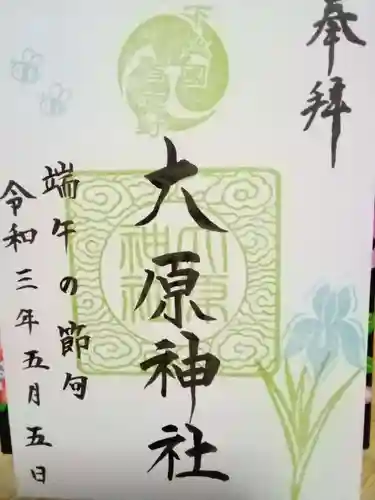 奉拝
下総国
大原神社
端午の節句
令和三年五月五日